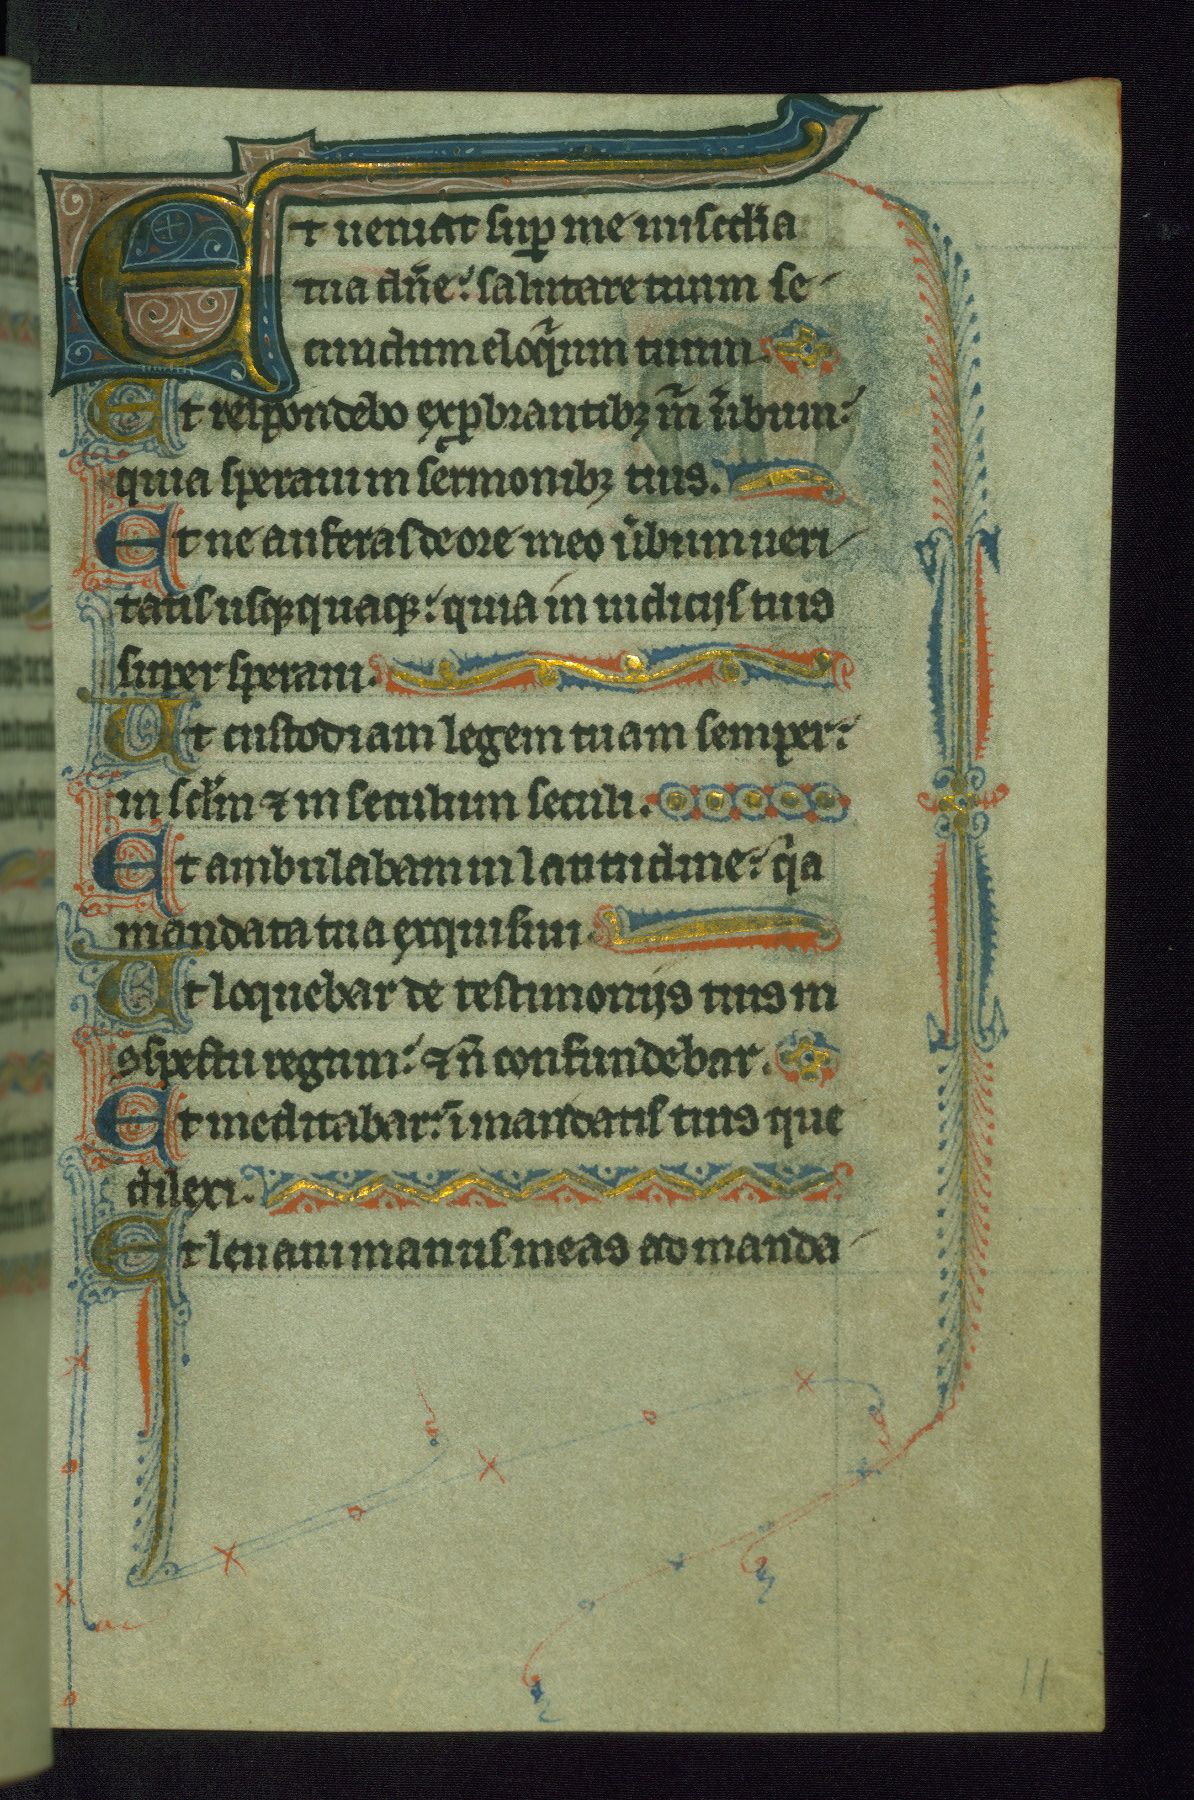 Et ueniat sup me miscdia
tua dn̄e: salutare tuum se
cundum eloqͥum tuum.
Et respondebo exp̱brantibꝫ m̄ ūbum:
quia speraui in sermonibꝫ tuis.
Et ne auferas de ore meo ūbum ueri
tatis usqꝫquaqꝫ: quia in iudicijs tuis
supersperaui.
Et custodiam legem tuam semper:
in sclm̄ ⁊ in seculum seculi.
Et ambulabam in latitudine: qͥa
mandata tua exquisiui.
Et loquebar de testimonijs tuis in
ꝯspectu regum: ⁊ n̄ confundebar.
Et meditabar: ī mandatis tuis que
dilexi.
Et leuaui manus meas ad manda
11